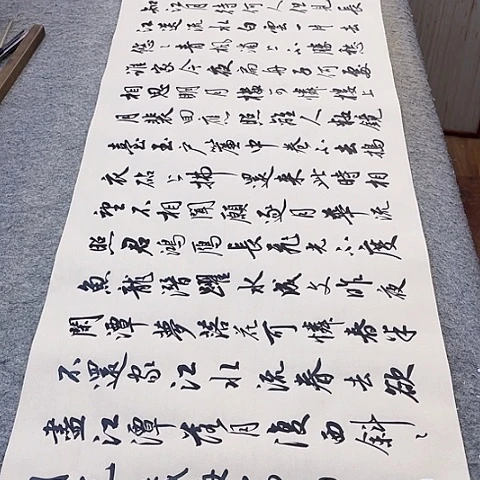 知江月待何人但見長
江送流水白雲一片去
悠〻青楓浦上不勝愁
誰家今夜扁舟子何處
相思明月樓可憐樓上
月裴回應照離人妝鏡
臺玉戶簾中卷不去搗
衣砧上拂還來此時相
望不相聞願逐月華流
照君鴻雁長飛光不度
魚龍潛躍水成文昨夜
閑潭夢落花可憐春半
不還家江水流春去欲
盡江潭落月復西斜〻